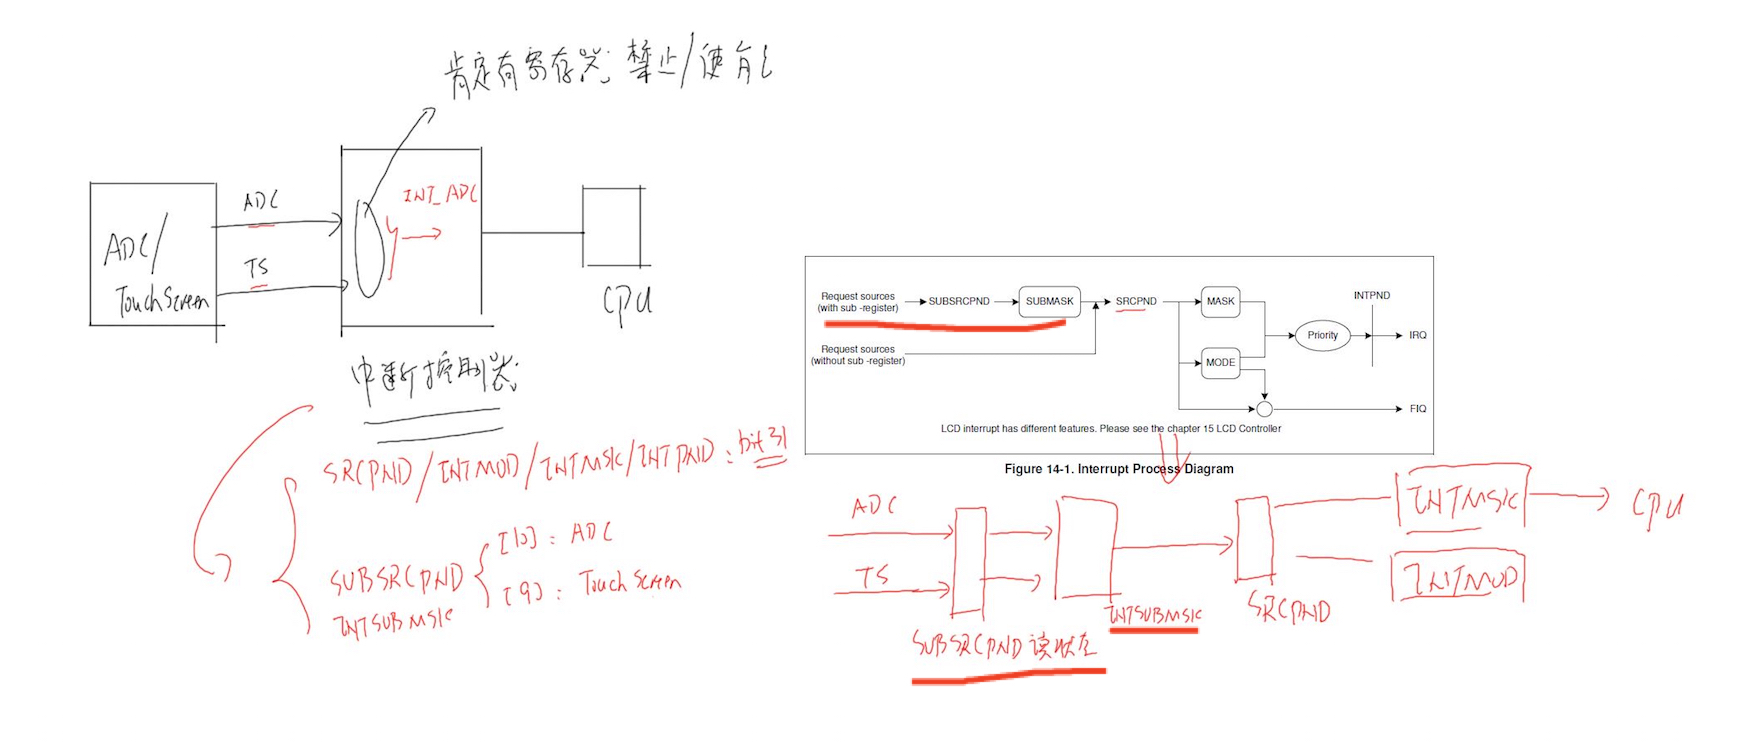 肯定有寄存器 禁止/使能
ADC
INT_ADC
ADC/
TouchScreen
TS
CPU
中断控制器
SRCPND/INTMOD/INTMSK/INTPND: bit31
SUBSRCPND
INTSUBMSK
[10]: ADC
[9]: TouchScreen
Request sources
(with sub -register)
SUBSRCPND
SUBMASK
SRCPND
MASK
INTPND
Request sources
(without sub -register)
MODE
Priority
IRQ
FIQ
LCD interrupt has different features. Please see the chapter 15 LCD Controller
Figure 14-1. Interrupt Process Diagram
ADC
TS
SUBSRCPND 读状态
INTSUBMSK
SRCPND
INTMSK
INTMOD
CPU